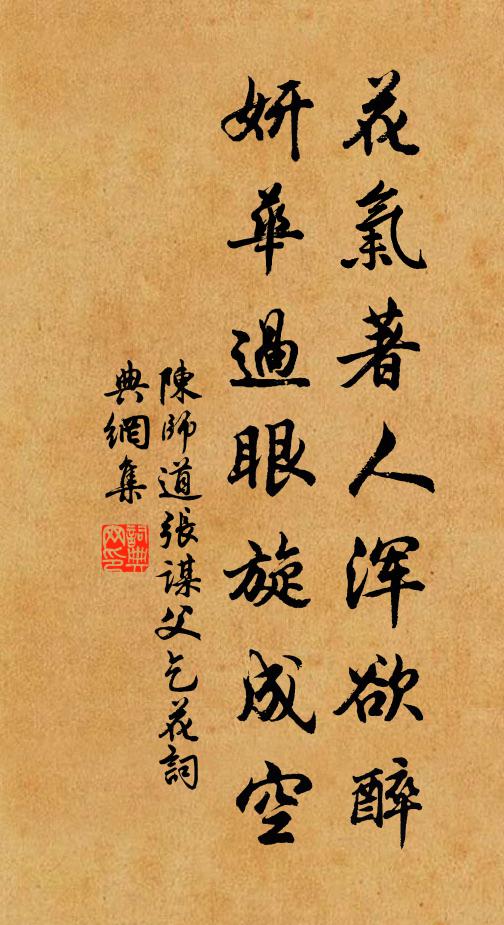 花氣著人浑欲醉
妍華過眼旋成空
陳師道張謀父乞花詞
典網集
詞典网印